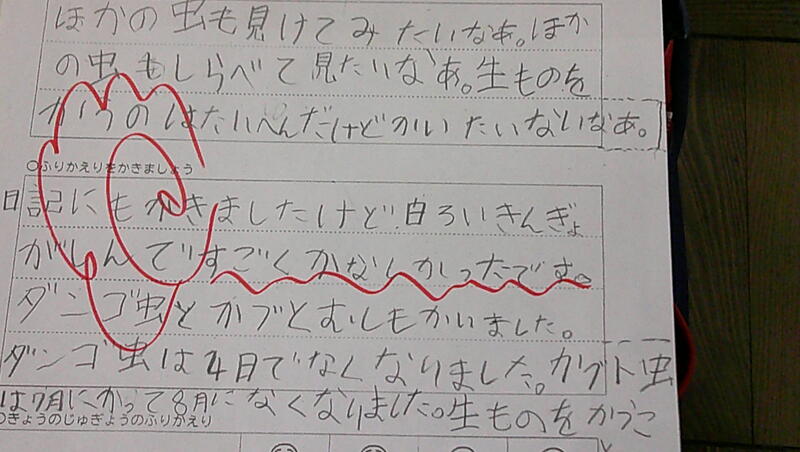 ほかの虫も見けてみたいなあ。ほか
の虫もしらべて見たいなあ。生ものを
かうのはたいへんだけどかいたいないなあ。
○ふりかえりをかきましょう
日記にもかきましたけど、白ろいきんぎょ
がしんですごくかなしかったです。
ダンゴ虫とかブとむしもかいました。
ダンゴ虫は4日でなくなりました。カブト虫
は7月にかって8月になくなりました。生ものをかうこ
○きょうのじゅぎょうのふりかえり